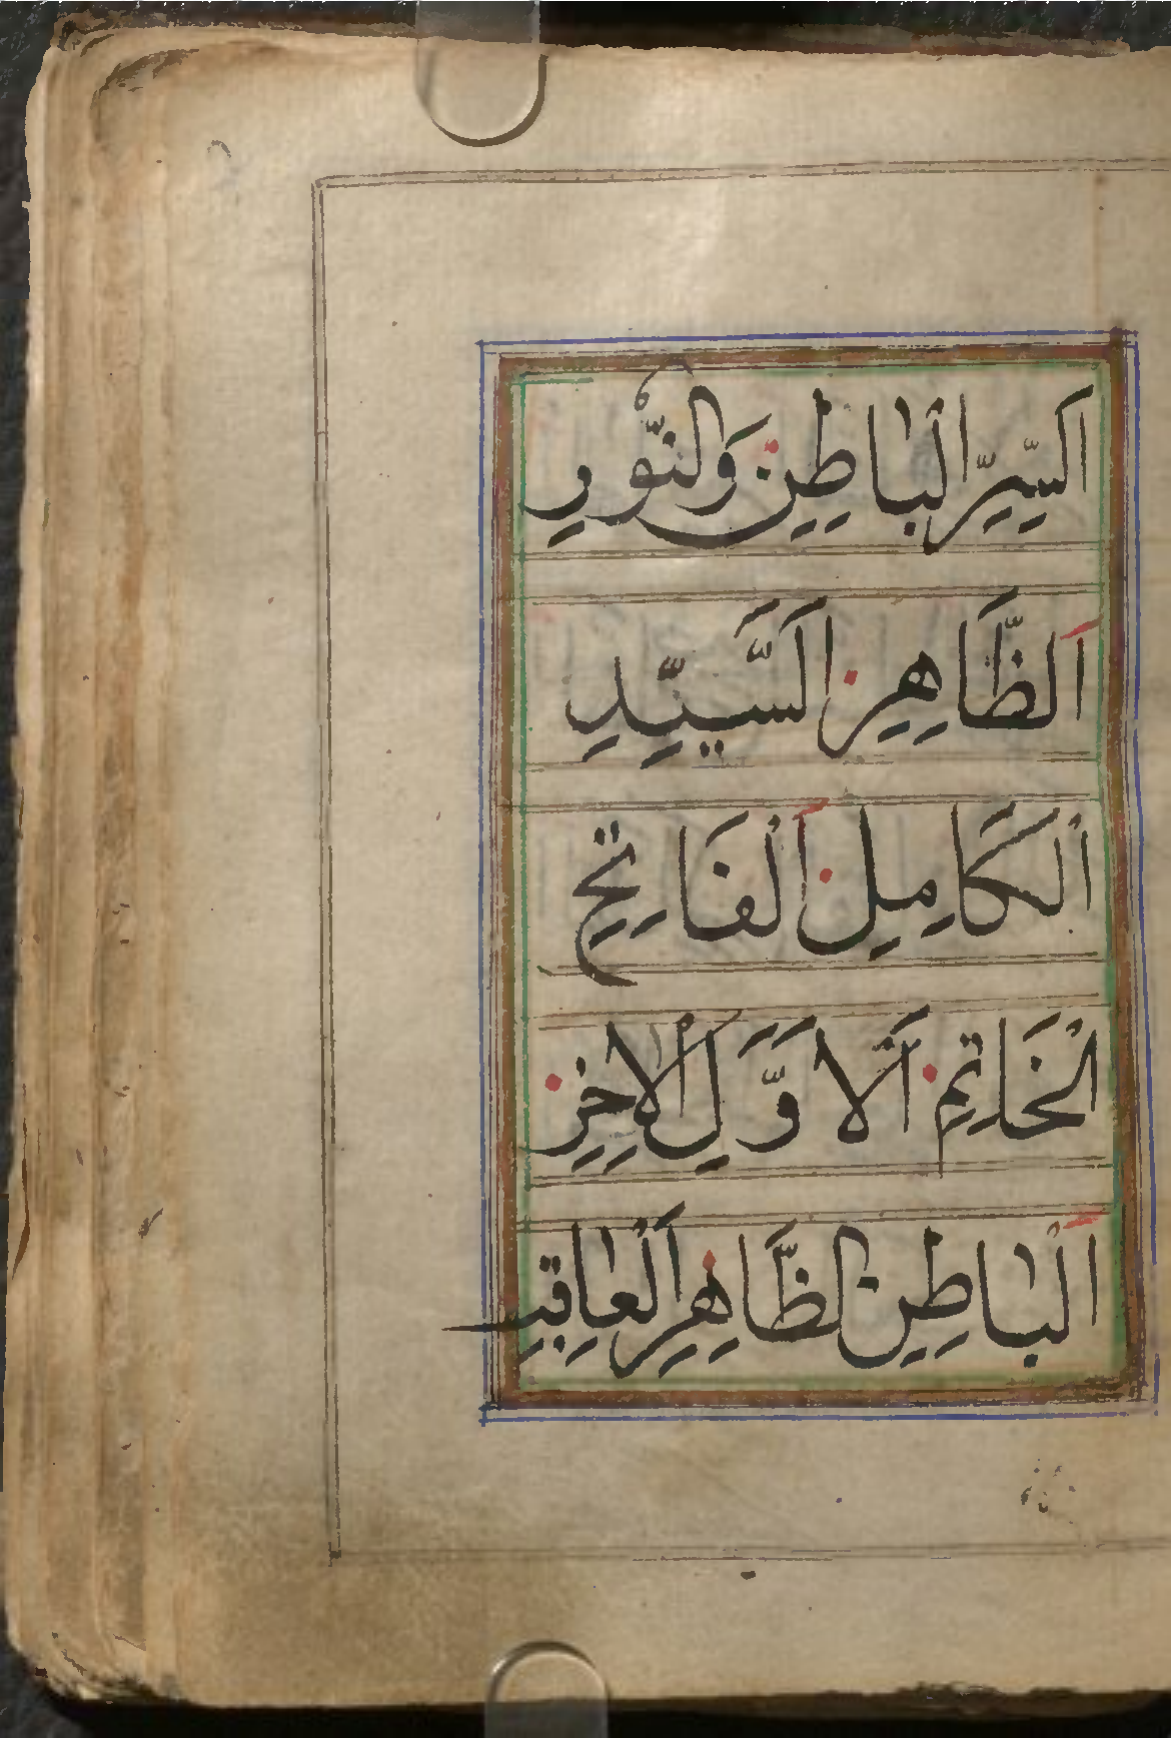 اَلسِّرِّ الْبَاطِنِ وَالنُّوْرِ
اَلظَّاهِرِ اَلسَّيِّدِ
اَلْكَامِلِ اَلْفَاتِحِ
اَلْخَاتِمِ اَلْاَوَّلِ الْاٰخِرِ
اَلْبَاطِنِ الظَّاهِرِ اَلْعَاقِبِ